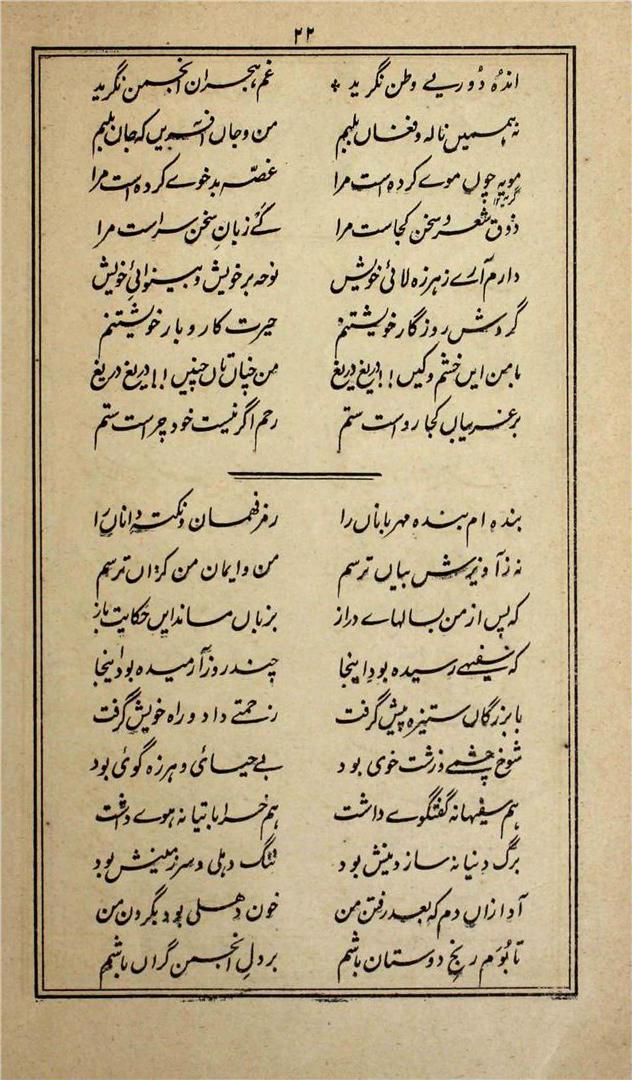 ۲۲
اندُه دُوریے وطن نگرید * غم ہجران انجمن نگرید
نہ ہمیں نالہ و فغاں بلبم من و جاں آفریں کہ جاں بلبم
مویہ چوں موے کردہ است مرا غصّہ بدخوے کردہ است مرا
گریہ ۱۲
ذوق شعر و سخن کجاست مرا کَے زبانِ سخن سراست مرا
دارم آرے ز ہرزہ لائی خویش نوحہ بر خویش و بینوائیِ خویش
گردشِ روزگار خویشتنم حیرت کار و بار خویشتنم
با من ایں خشم و کیں !! دریغ دریغ من چناں تاں چنیں !! دریغ دریغ
بر غریباں کجا رواست ستم رحم اگر نیست خود چراست ستم
بندہ ام بندہ مہرباناں را رمز فہمان و نکتہ داناں را
نہ ز آویزش بیاں ترسم من و ایمان من کزاں ترسم
کہ پس از من بسالہاے دراز بزباں ماند ایں حکایت باز
کہ سفیہے رسیدہ بود اینجا چند روز آرمیدہ بود اینجا
با بزرگاں ستیزہ پیش گرفت زحمتے داد و راہ خویش گرفت
شوخ چشمے و زشت خوی بود بے حیائ و ہرزہ گوئ بود
ہم سفیہانہ گفتگوے داشت ہم خراباتیانہ ہوے داشت
برگ دنیا نہ ساز دینش بود ننگ دہلی و سرزمینش بود
آہ ازاں دم کہ بعد رفتن من خون دھلی بود بگردن من
تا بُوَم رنج دوستان باشم بر دلِ انجمن گراں باشم